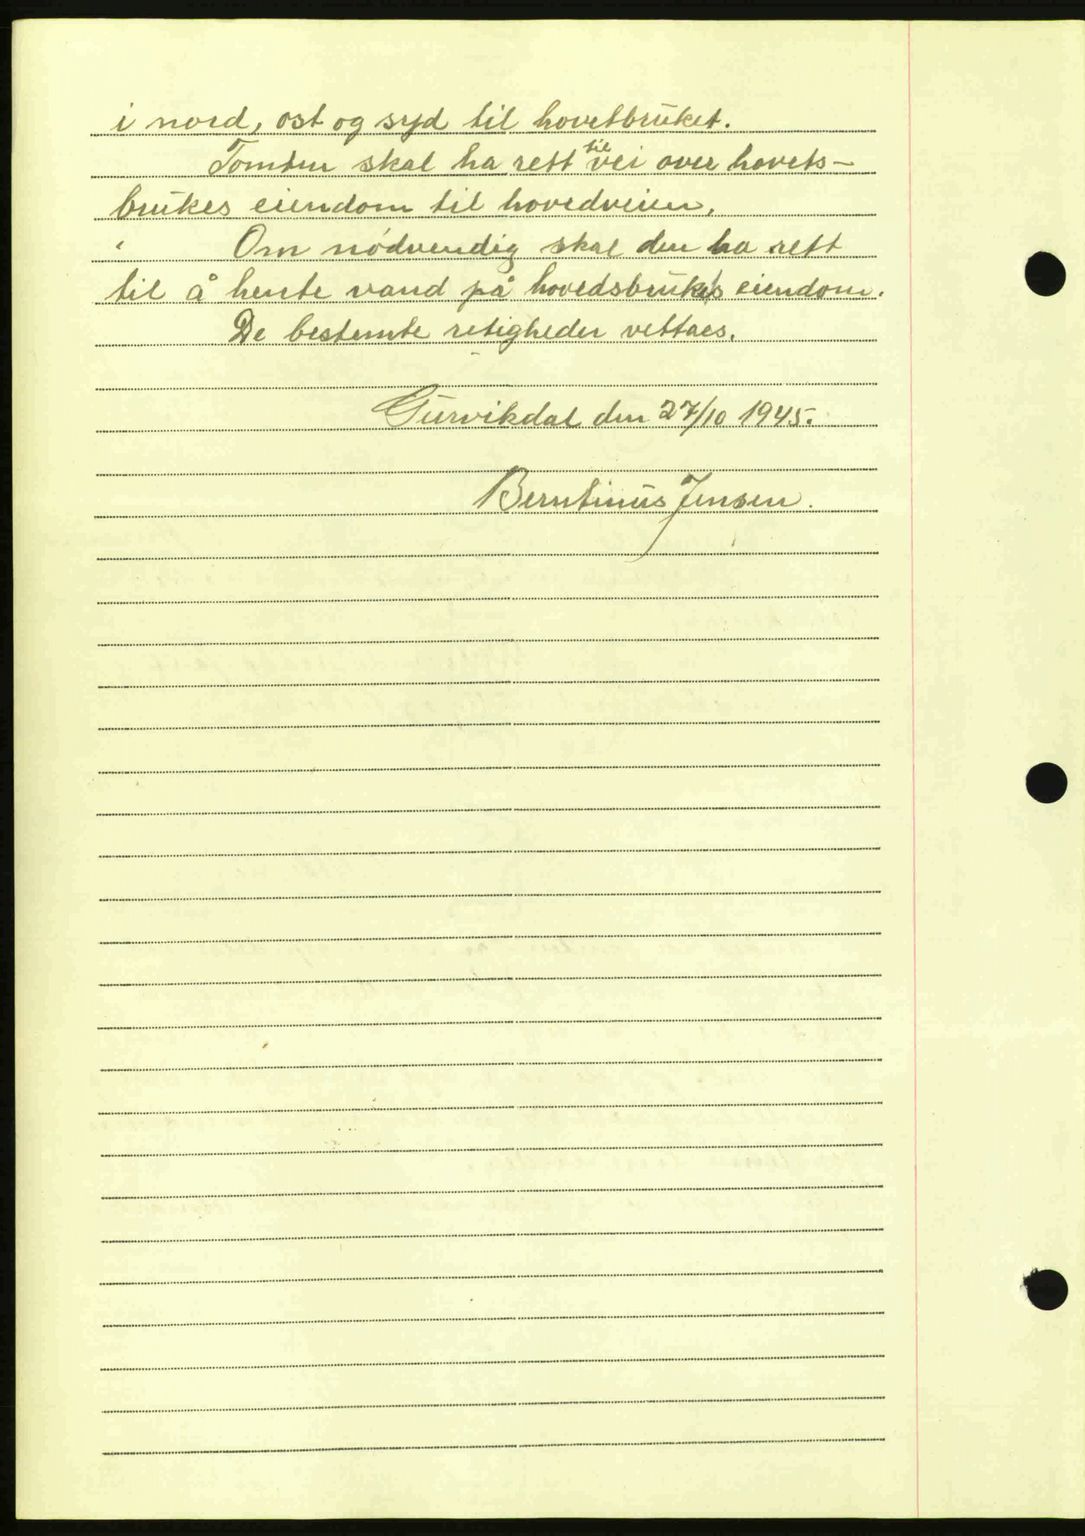 i nord, ost og syd til hovetbruket.
Tomten skal ha rett til vei over hovets-
brukes eiendom til hovedveien.
Om nødvendig skal den ha rett
til å hente vand på hovedsbrukets eiendom.
De bestemte retigheder vettaes.
Gurvikdal den 27/10 1945.
Berntinus Jensen.